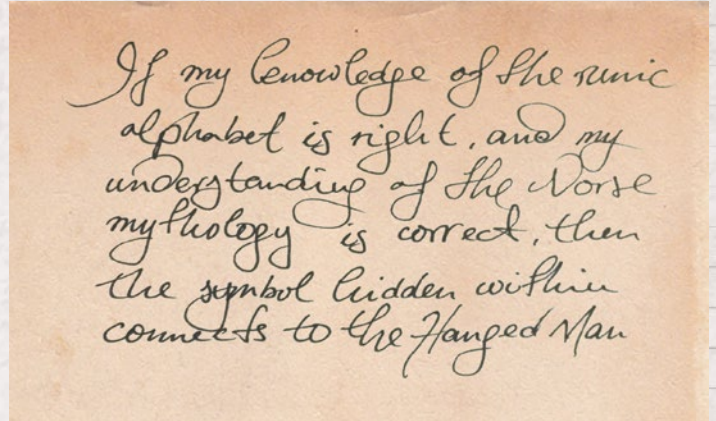 If my knowledge of the runic
alphabet is right, and my
understanding of the Norse
mythology is correct, then
the symbol hidden within
connects to the Hanged Man